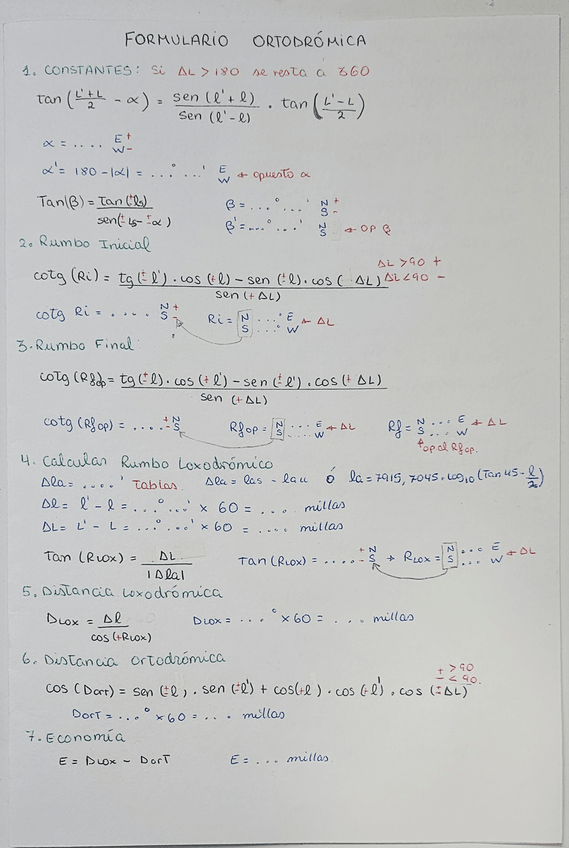 FORMULARIO ORTODRÓMICA
1. CONSTANTES: Si ΔL > 180 se resta a 360
Tan (L'+L/2 - α) = sen (l'+l)/sen (l'-l) · tan (L'-L/2)
α = .... E+ W-
α' = 180 - |α| = ...°...' E W ← opuesto α
Tan(β) = Tan(±ls)/sen(±Ls-±α) β = ...°...' N+ S-
β' = ...°...' N S ← OP β
2. Rumbo Inicial
ΔL > 90 +
cotg (Ri) = tg (±l') · cos (+l) - sen (±l) · cos ( ΔL)/sen (+ΔL) ΔL < 90 -
cotg Ri = .... N+ S- Ri = N S ...° E W ← ΔL
3. Rumbo Final
cotg (Rfop) = tg (±l) · cos (+l') - sen (±l') · cos (+ ΔL)/sen (+ΔL)
cotg (Rfop) = .... +N -S Rfop = N S ... E W ← ΔL Rf = N S ... E W ← ΔL
op al Rfop.
4. Calcular Rumbo Loxodrómico
Δla = ....' Tablas. Δla = las - lau ó la = 7915,7045 · log10 (Tan 45 - l/2)
Δl = l' - l = ...°...' × 60 = .... millas
ΔL = L' - L = ...°...' × 60 = .... millas
Tan (Rlox) = ΔL/|Δla| Tan (Rlox) = .... +N -S → Rlox = N S ...° E W ← ΔL
5. Distancia Loxodrómica
Dlox = Δl/cos (+Rlox) Dlox = ...° × 60 = .... millas
6. Distancia Ortodrómica
+ > 90
- < 90.
cos (Dort) = sen (±l) · sen (±l') + cos(+l) · cos (+l') · cos (±ΔL)
Dort = ...° × 60 = ... millas
7. Economía
E = Dlox - Dort E = ... millas